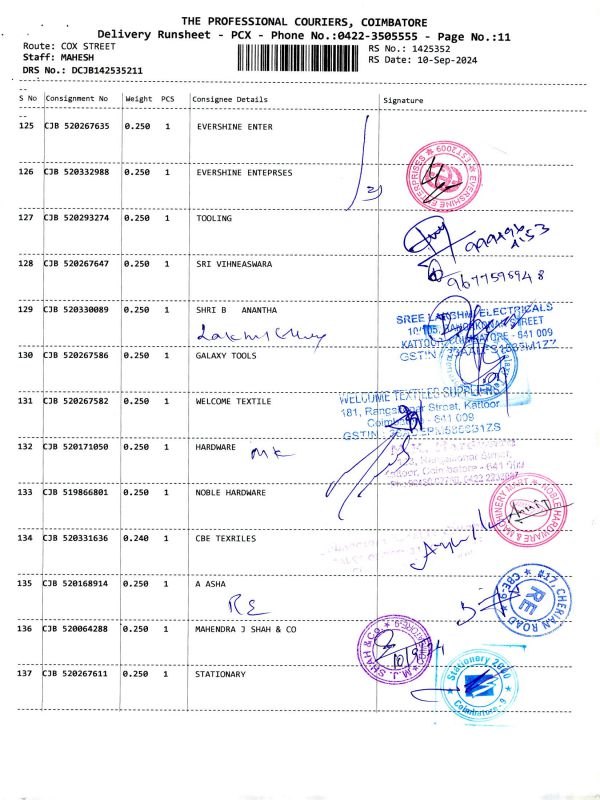 THE PROFESSIONAL COURIERS, COIMBATORE
Delivery Runsheet - PCX - Phone No.:0422-3505555 - Page No.:11
Route: COX STREET
RS No.: 1425352
Staff: MAHESH
RS Date: 10-Sep-2024
DRS No.: DCJB142535211
S No Consignment No Weight PCS Consignee Details Signature
125 CJB 520267635 0.250 1 EVERSHINE ENTER
126 CJB 520332988 0.250 1 EVERSHINE ENTEPRSES
EVERSHINE ENTERPRISES ★ EST2009 ★
127 CJB 520293274 0.250 1 TOOLING
128 CJB 520267647 0.250 1 SRI VIHNEASWARA
9677596948
129 CJB 520330089 0.250 1 SHRI B ANANTHA
SREE LAKSHMI ELECTRICALS
STREET
KATTOOR, COIMBATORE - 641 009
GSTIN
130 CJB 520267586 0.250 1 GALAXY TOOLS
131 CJB 520267582 0.250 1 WELCOME TEXTILE
WELCOME TEXTILES SUPPLIERS
181, Rangai Street, Kattoor
Coimbatore - 641 009
GSTIN
132 CJB 520171050 0.250 1 HARDWARE
MK
133 CJB 519866801 0.250 1 NOBLE HARDWARE
NOBLE HARDWARE & MACHINERY MART ★
134 CJB 520331636 0.240 1 CBE TEXRILES
135 CJB 520168914 0.250 1 A ASHA
RE
RE
★ #17, CHERIAN ROAD ★ CBE-9
136 CJB 520064288 0.250 1 MAHENDRA J SHAH & CO
M.J. SHAH & Co.
10/9/24
137 CJB 520267611 0.250 1 STATIONARY
Stationery 2000
Coimbatore - 9